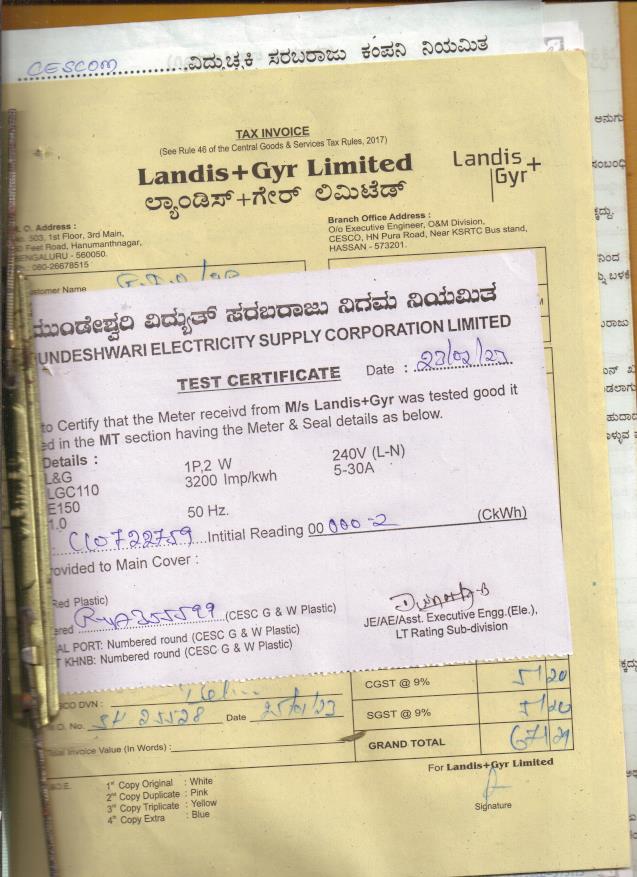 CESCOM ವಿದ್ಯುಚ್ಛಕ್ತಿ ಸರಬರಾಜು ಕಂಪನಿ ನಿಯಮಿತ
TAX INVOICE
(See Rule 46 of the Central Goods & Services Tax Rules, 2017)
Landis+Gyr Limited
ಲ್ಯಾಂಡಿಸ್+ಗೇರ್ ಲಿಮಿಟೆಡ್
Landis+
Gyr
O. Office Address :
503, 1st Floor, 3rd Main,
Feet Road, Hanumanthnagar,
BENGALURU - 560050.
080-26678515
Branch Office Address :
O/o Executive Engineer, O&M Division,
CESCO, HN Pura Road, Near KSRTC Bus stand,
HASSAN - 573201.
ustomer Name
ಮುಂಡೇಶ್ವರಿ ವಿದ್ಯುತ್ ಸರಬರಾಜು ನಿಗಮ ನಿಯಮಿತ
UNDESHWARI ELECTRICITY SUPPLY CORPORATION LIMITED
TEST CERTIFICATE
Date :
to Certify that the Meter receivd from M/s Landis+Gyr was tested good it
ed in the MT section having the Meter & Seal details as below.
Details :
L&G 1P,2 W 240V (L-N)
LGC110 3200 Imp/kwh 5-30A
E150
1.0 50 Hz.
C10722759 Intitial Reading 00 000-2 (CkWh)
rovided to Main Cover :
Red Plastic)
ered (CESC G & W Plastic)
AL PORT: Numbered round (CESC G & W Plastic)
T KHNB: Numbered round (CESC G & W Plastic)
JE/AE/Asst. Executive Engg.(Ele.),
LT Rating Sub-division
SCO DVN :
O. No. 25528 Date 25/01/23
CGST @ 9% 5120
SGST @ 9% 5120
GRAND TOTAL 67121
Total Invoice Value (In Words) :
For Landis+Gyr Limited
Signature
1st Copy Original : White
2nd Copy Duplicate : Pink
3rd Copy Triplicate : Yellow
4th Copy Extra : Blue